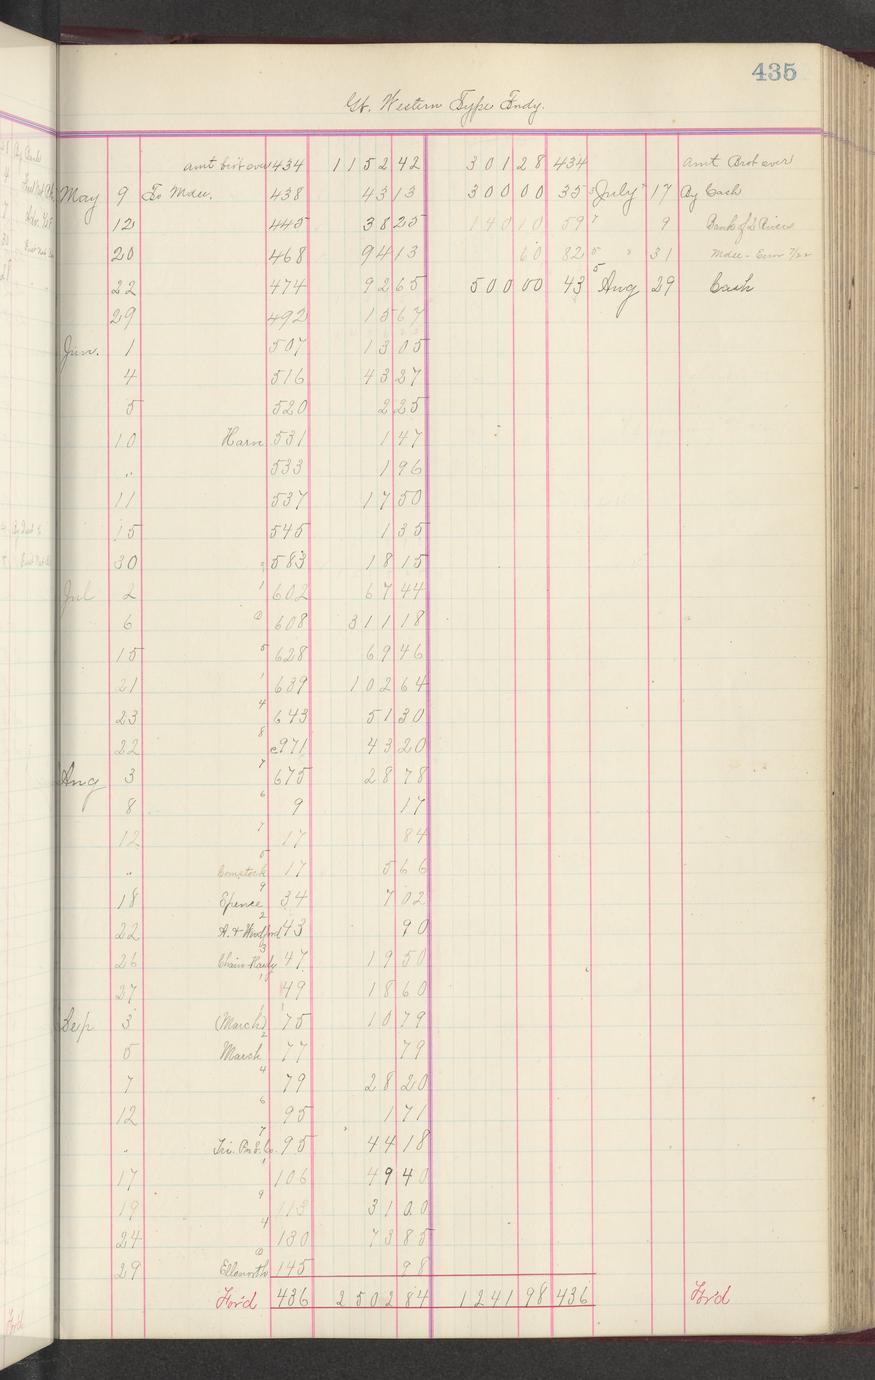 435
Gt. Western Type Fndy.
amt brot over 434 1152 42 301 28 434 amt Brot over
May 9 To Mdse. 438 43 13 300 00 35 July 17 By Cash
12 445 38 25 140 10 59 9 Bank of 3 Rivers
20 468 94 13 60 82 " 31 Mdse - Error 7/22
22 474 92 65 500 00 43 Aug 29 Cash
29 492 15 67
Jun. 1 507 13 05
4 516 43 27
5 520 2 25
10 Harn 531 1 47
" 533 1 96
11 537 17 50
15 545 1 35
30 583 18 15
Jul 2 602 67 44
6 608 311 18
15 628 69 46
21 639 102 64
23 643 51 30
22 c971 43 20
Aug 3 675 28 78
8 9 17
12 17 84
" Comstock 17 5 66
18 Spence 34 7 02
22 43 90
26 Chain Hardy 47 19 50
27 49 18 60
Sep 3 (March) 75 10 79
5 March 77 79
7 79 28 20
12 95 1 71
" Tri. 95 44 18
17 106 49 40
19 113 31 00
24 130 73 85
29 Ellsworth 145 98
For'd 436 2502 84 1241 98 436 For'd